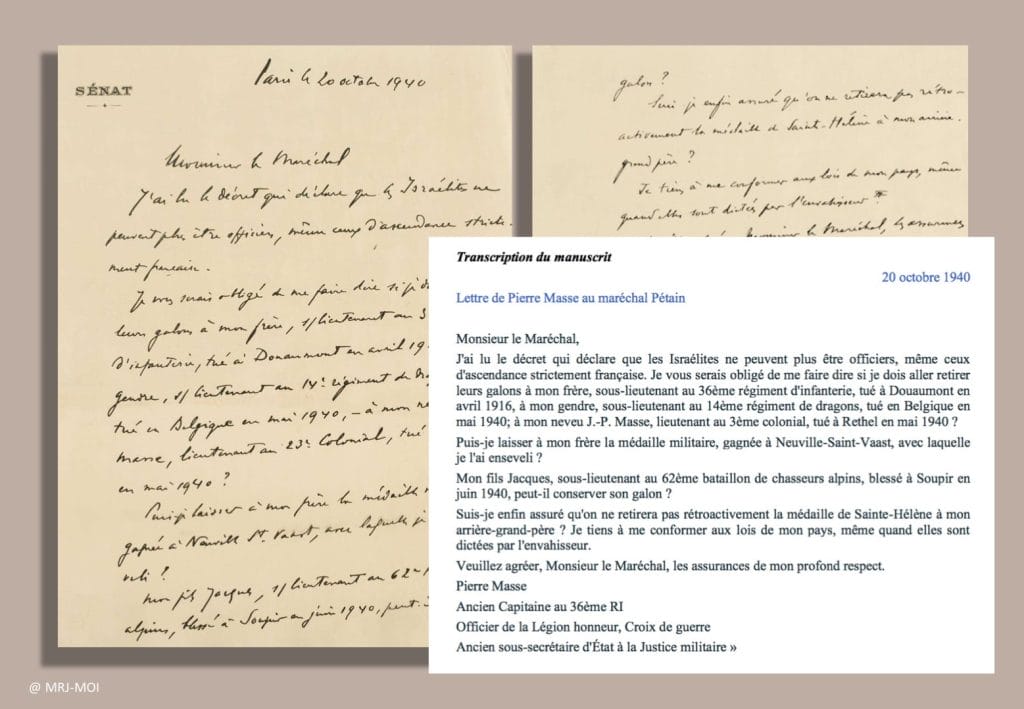 SÉNAT
Paris le 20 octobre 1940
Monsieur le Maréchal
J'ai lu le décret qui déclare que les Israélites ne
peuvent plus être officiers, même ceux d'ascendance stricte-
ment française.
Je vous serais obligé de me faire dire si je d
leurs galons à mon frère, s/lieutenant au 3
d'infanterie, tué à Douaumont en avril 19
gendre, s/lieutenant au 14e régiment de
tué en Belgique en mai 1940, – à mon ne
Masse, lieutenant au 23e Colonial, tué
en mai 1940 ?
Puis-je laisser à mon frère la médaille
gagnée à Neuville St. Vaast, avec laquelle je
veli ?
Mon fils Jacques, s/lieutenant au 62e
alpins, blessé à Soupir en juin 1940, peut-
galon ?
Suis-je enfin assuré qu'on ne retirera pas rétro-
activement la médaille de Sainte-Hélène à mon arrière-
grand père ?
Je tiens à me conformer aux lois de mon pays, même
quand elles sont dictées par l'envahisseur.
Monsieur le Maréchal, les assurances
Transcription du manuscrit
20 octobre 1940
Lettre de Pierre Masse au maréchal Pétain
Monsieur le Maréchal,
J'ai lu le décret qui déclare que les Israélites ne peuvent plus être officiers, même ceux
d'ascendance strictement française. Je vous serais obligé de me faire dire si je dois aller retirer
leurs galons à mon frère, sous-lieutenant au 36ème régiment d'infanterie, tué à Douaumont en
avril 1916, à mon gendre, sous-lieutenant au 14ème régiment de dragons, tué en Belgique en
mai 1940; à mon neveu J.-P. Masse, lieutenant au 3ème colonial, tué à Rethel en mai 1940 ?
Puis-je laisser à mon frère la médaille militaire, gagnée à Neuville-Saint-Vaast, avec laquelle
je l'ai enseveli ?
Mon fils Jacques, sous-lieutenant au 62ème bataillon de chasseurs alpins, blessé à Soupir en
juin 1940, peut-il conserver son galon ?
Suis-je enfin assuré qu'on ne retirera pas rétroactivement la médaille de Sainte-Hélène à mon
arrière-grand-père ? Je tiens à me conformer aux lois de mon pays, même quand elles sont
dictées par l'envahisseur.
Veuillez agréer, Monsieur le Maréchal, les assurances de mon profond respect.
Pierre Masse
Ancien Capitaine au 36ème RI
Officier de la Légion honneur, Croix de guerre
Ancien sous-secrétaire d'État à la Justice militaire »
@ MRJ-MOI